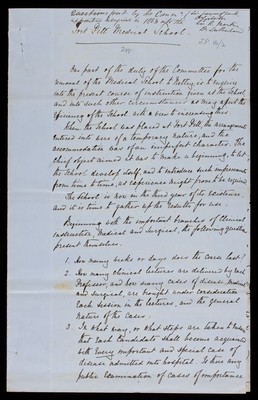 Questions put by the Comm. of
appointed to enquire in 1863 into the
Fort Pitt Medical School.
One part of the duty of the Committee for the
removal of the Medical School to Netley, is to enquire
into the present course of instruction given at the School,
and into such other circumstances as may affect the
efficiency of the School with a view to
When the School was placed at Fort Pitt the arrangements
entered into were of a temporary nature, and the
accommodation was of an imperfect character. The
chief object aimed at was to make a beginning, to let
the School develop itself, and to introduce such improvements
from time to time, as experience might prove to be required
The School is now in the third year of its existence
and it is time to gather up the results for use.
Beginning with the important branches of Clinical
instruction, Medical and Surgical, the following questions
present themselves.
1. How many weeks or days does the course last?
2. How many clinical lectures are delivered by each
Professor, and how many cases of disease Medical
and Surgical, are brought under consideration
each Session in the lectures, and the general
nature of the cases.
3. In what way, or what steps are taken to
that each Candidate shall become acquainted
with every important and special case of
disease admitted into hospital. Is there any
public Examination of cases of importance